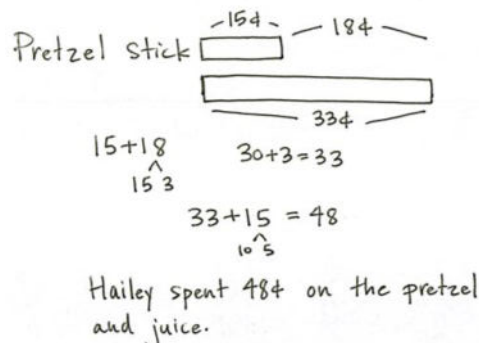 15¢
18¢
Pretzel Stick
33¢
15+18
15 3
30+3=33
33+15 = 48
10 5
Hailey spent 48¢ on the pretzel
and juice.